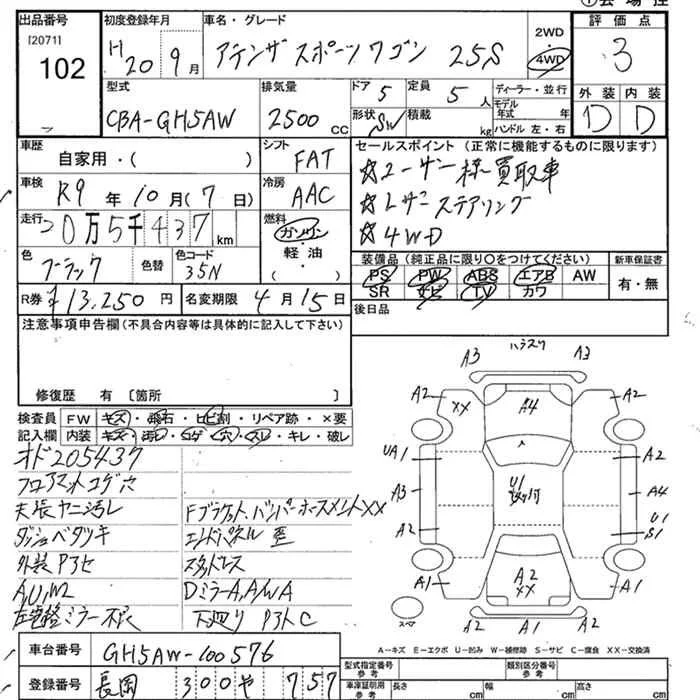 出品番号 [2071] 102
初度登録年月 H20 9月
車名・グレード アテンザスポーツワゴン 25S
2WD
4WD
評価点 3
型式 CBA-GH5AW
排気量 2500 CC
ドア 5 定員 5 人
形状 SW 積載 kg
ディーラー・並行
モデル年式 年
ハンドル 左・右
外装 内装
D D
車歴 自家用・( )
シフト FAT
車検 R9 年 10 月(7 日)
冷房 AAC
走行 20万5千437 km
燃料 ガソリン・軽油・( )
色 ブラック 色替 色コード 35N
R券 ¥13,250 円 名変期限 4 月 15 日
セールスポイント (正常に機能するものに限ります)
☆ユーザー様買取車
☆レザーステアリング
☆4WD
装備品 (純正品に限り○をつけてください) 新車保証書
PS PW ABS エアB AW 有・無
SR ナビ TV カワ
後日品
注意事項申告欄 (不具合内容等は具体的に記入して下さい)
修復歴 有 〔箇所 〕
検査員 FW キズ・飛石・ヒビ割・リペア跡・×要
記入欄 内装 キズ・汚レ・コゲ・穴・スレ・キレ・破レ
オド205437
フロアマットコゲ穴
天張ヤニ汚レ
ダッシュベタツキ
外装Pアセ
A,U,W2
左電格ミラー不良
Fブラケット、バンパーホースメントXX
エンドパネル歪
スタッドレス
Dミラー A,A/WA
下廻り PアトC
ハラスリ
A3 A3
A2 XX A4 A2
UA1 A2
A3 U1 A4
A2 U1
S1
A1 A2 XX A1
スペア
A2 A1 A2
A-キズ E-エクボ U-凹み W-補修跡 S-サビ C-腐食 XX-交換済
車台番号 GH5AW-100576
登録番号 長岡 300 や 757
型式指定番号 参考 類別区分番号 参考
車庫証明用 参考 長さ cm 幅 cm 高さ cm